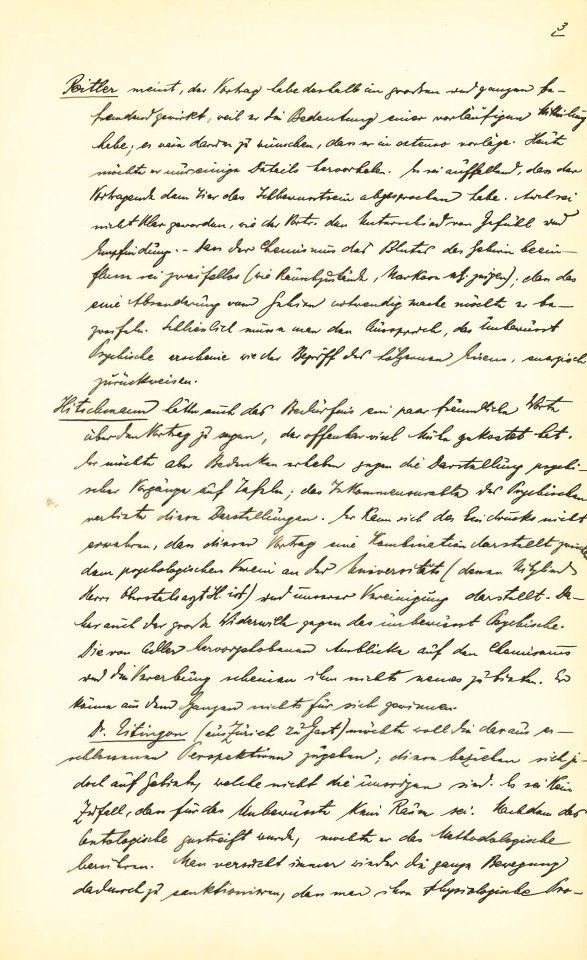 3
Reitler meint, der Vortrag habe deshalb im grossen und ganzen be-
fremdend gewirkt, weil er die Bedeutung einer vorläufigen Mitteilung
habe; es wäre daher zu wünschen, dass er in extenso vorläge. Heute
möchte er nur einige Details hervorheben. Es sei auffallend, dass der
Vortragende dem Tier das Ichbewusstsein abgesprochen habe. Auch sei
nicht klar geworden, wie der Vortr. den Unterschied von Gefühl und
Empfindung. - Dass der Chemismus des Blutes das Gehirn beein-
flusse sei zweifellos (wie Räuschzustände, Narkose zeigen); dass das
eine Abänderung vom Gehirn notwendig mache möchte er be-
zweifeln. Schliesslich müsse man den Ausspruch, das Unbewusst
Psychische erscheine wie der Begriff des hölzernen Eisens, energisch
zurückweisen.
Hitschmann hätte auch das Bedürfnis ein paar freundliche Worte
über den Vortrag zu sagen, der offenbar viel Mühe gekostet hat.
Er möchte aber Bedenken erheben gegen die Darstellung psychi-
scher Vorgänge auf Tafeln; das Inkommensurable des Psychischen
verbiete diese Darstellungen. Er kann sich des Eindrucks nicht
erwehren, dass dieser Vortrag eine Kombination darstellt zwischen
dem psychologischen Verein an der Universität (dessen Mitglied
Herr ist) und unserer Vereinigung darstellt. Da-
her auch der grosse Widerwille gegen das unbewusst Psychische.
Die von Adler hervorgehobenen Ausblicke auf den Chemismus
und die Vererbung scheinen ihm nichts neues zu bieten. Er
könne aus dem Ganzen nichts für sich gewinnen.
Dr. Eitingon (aus Zürich zu Gast) möchte wohl die daraus er-
schlossenen Perspektiven zugeben; diese beziehen sich je-
doch auf Gebiete, welche nicht die unsrigen sind. Es sei kein
Zufall, dass für das Unbewusste kein Raum sei. Nachdem das
Ontologische gestreift wurde, möchte er das Methodologische
berühren. Man versucht immer wieder die ganze Bewegung
dadurch zu sanktionieren, dass man ihre physiologische Pro-